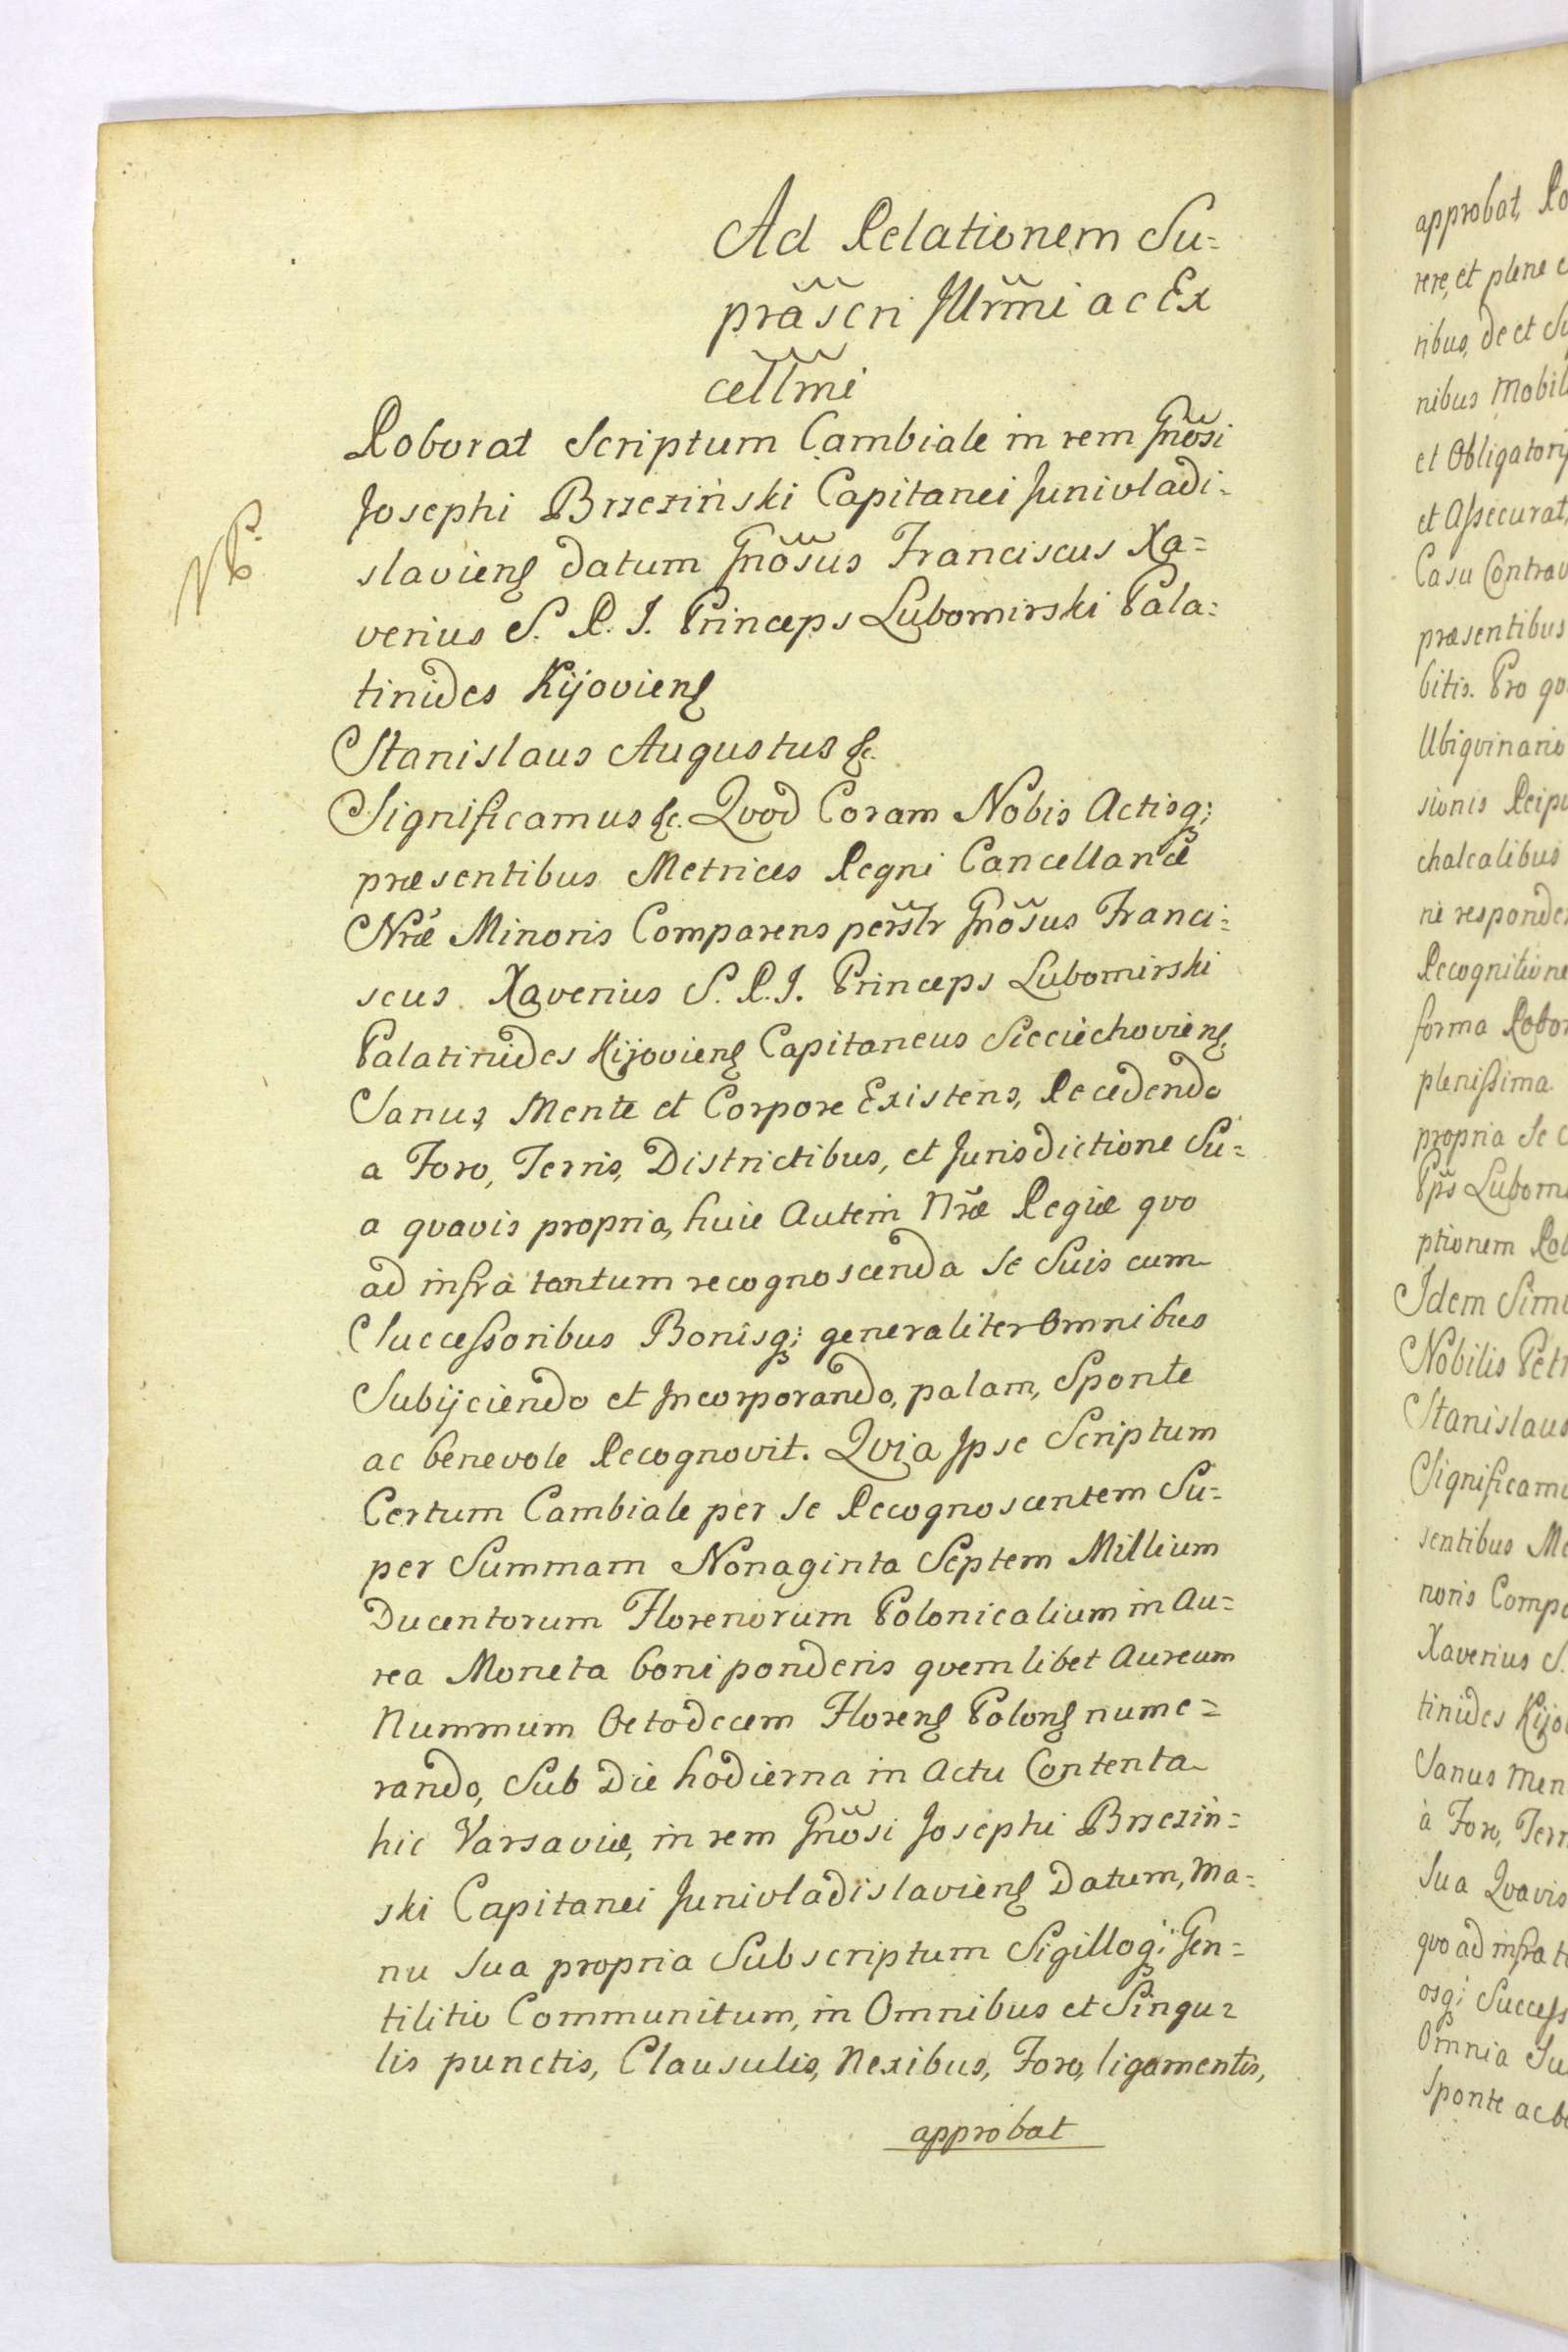 Ad Relationem Su=
prãscri Jllrm̃i ac Ex
cell̃mi
Roborat Scriptum Cambiale in rem Gnõsi
Josephi Brzeziński Capitanei Junivladi=
slavieñs datum Gnõsus Franciscus Xa=
verius S. R. J. Princeps Lubomirski Pala=
tinides Kijovieñs
Stanislaus Augustus &c.
Significamus &c. Qvod Coram Nobis Actisq;
præsentibus Metrices Regni Cancellariæ
Nrãe Minoris Comparens persl̃r Gnõsus Franci=
scus Xaverius S. R. J. Princeps Lubomirski
Palatinides Kijovieñs Capitaneus Sieciechovieñs,
Sanus Mente et Corpore Existens, Recedendo
a Foro, Terris, Districtibus, et Jurisdictione Su=
a qvavis propria, huic Autem Nrãe Regiæ qvo
ad infra tantum recognoscenda Se Suis cum
Successoribus Bonisq; generaliter Omnibus
Subijciendo et Jncorporando, palam, Sponte
ac benevole Recognovit. Qvia Jpse Scriptum
Certum Cambiale per Se Recognoscentem Su=
per Summam Nonaginta Septem Millium
Ducentorum Florenorum Polonicalium in Au=
rea Moneta boni ponderis qvemlibet Aureum
Nummum Octodecem Floreñs Poloñs nume=
rando, Sub Die hodierna in Actu Contenta
hic Varsaviæ, in rem Gnõsi Josephi Brzeziń=
ski Capitanei Junivladislavieñs Datum, Ma=
nu Sua propria Subscriptum Sigilloq; Gen=
tilitio Communitum, in Omnibus et Singu=
lis punctis, Clausulis, Nexibus, Foro, ligamentis,
approbat
approbat, Ro
rere, et plene
ribus, de et Su
nibus Mobil
et Obligatorij
et Assecurat,
Casu Contrav
præsentibus
bitis. Pro qvo
Ubiqvinario
sionis Reipu
chalcalibus
ni responde
Recognitione
forma Robor
plenissima
propria Se
Pps̃ Lubomi
ptionem Rob
Jdem Simi
Nobilis Petr
Stanislaus
Significamu
sentibus Me
noris Compa
Xaverius S.
tinides Kijo
Sanus Men
à Foro, Terr
Sua Qvavis
qvo ad infra t
osq; Success
Omnia Su
Sponte ac be